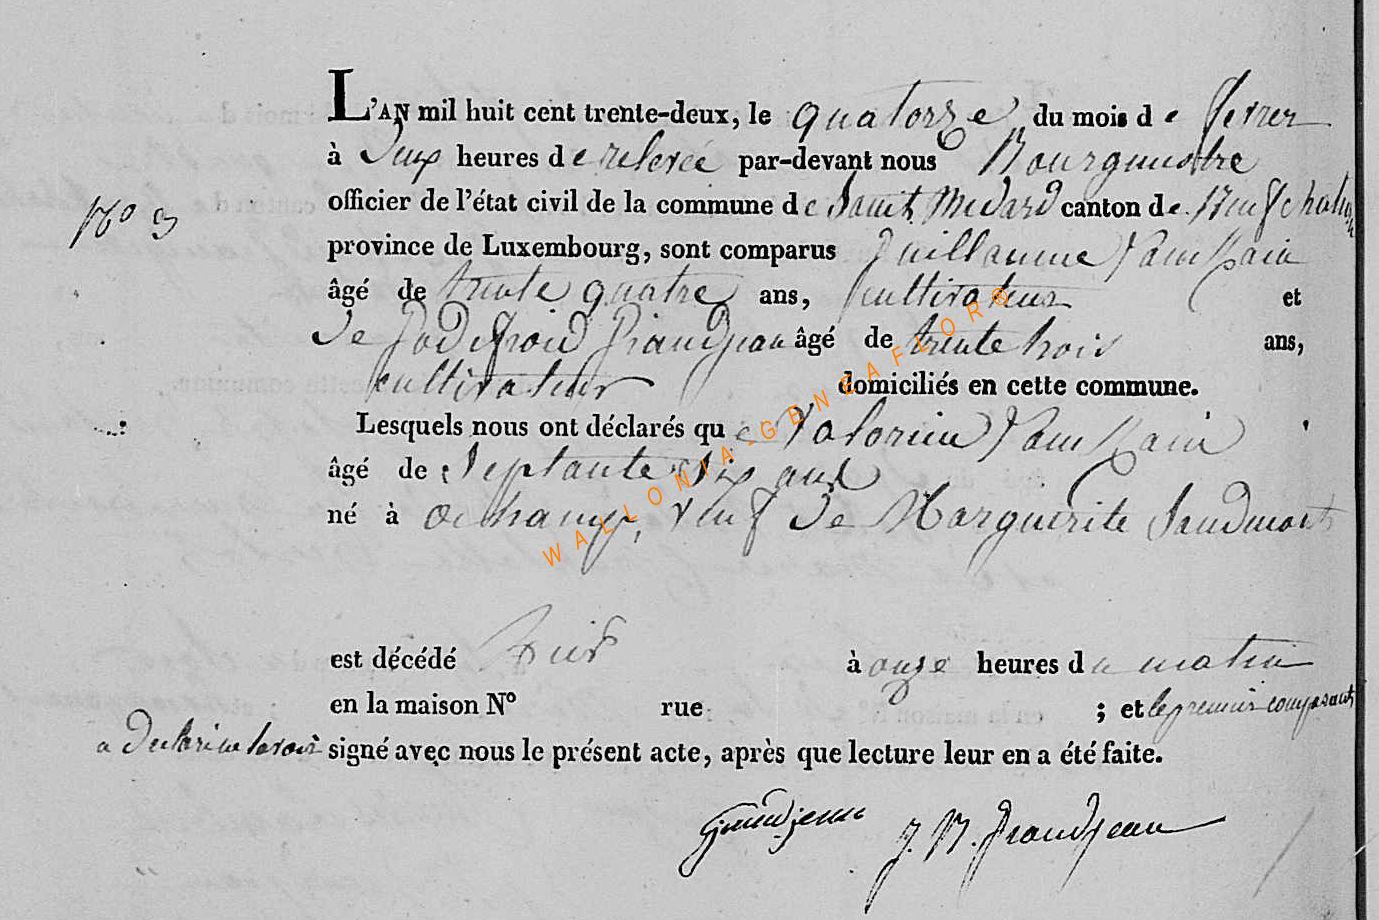 L'AN mil huit cent trente-deux, le quatorze du mois de fevrier
à Deux heures de relevée par-devant nous Bourgmestre
officier de l'état civil de la commune de Saint Medard canton de Neufchateau
N° 3
province de Luxembourg, sont comparus Guillaume
âgé de trente quatre ans, cultivateur et
De Godefroid Grandjean âgé de trente trois ans,
cultivateur domiciliés en cette commune.
Lesquels nous ont déclarés que
âgé de Septante Six ans
né à veuf De Marguerite
est décédé hier à onze heures du matin
en la maison N° rue ; et le premier comparant
a Declarine savoir signé avec nous le présent acte, après que lecture leur en a été faite.
Grandjean J. N. Grandjean
WALLONIA-GENCAFLORO